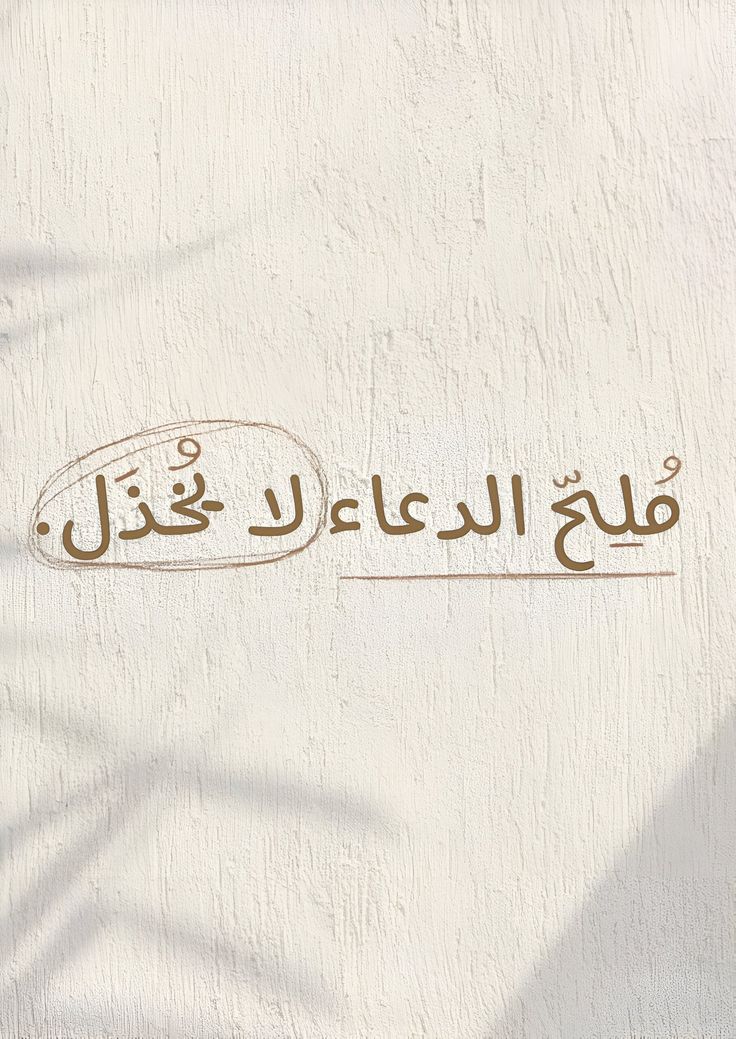 مُلِحّ الدعاء لا يُخذَل.